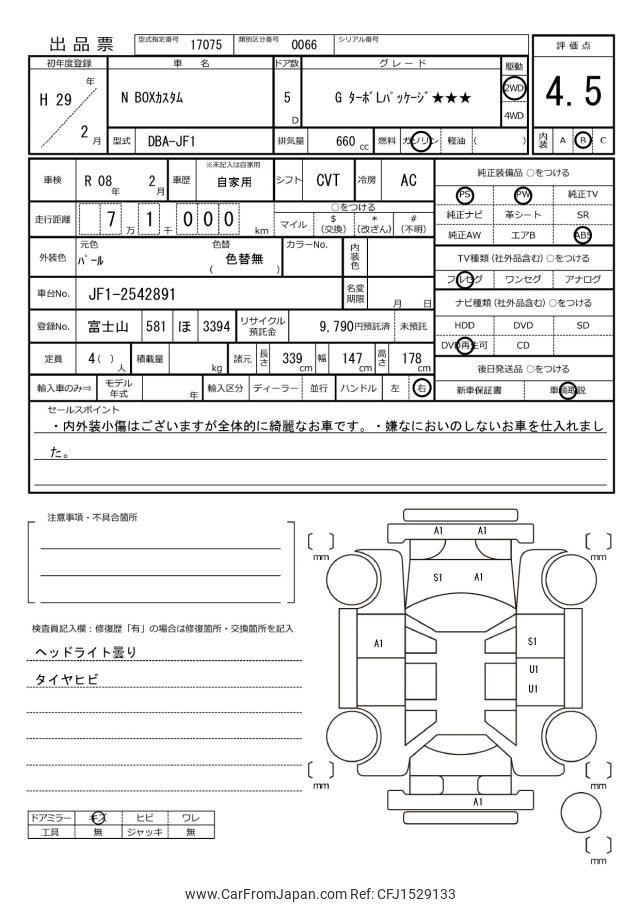 出品票 型式指定番号 17075 類別区分番号 0066 シリアル番号
評価点
4.5
初年度登録 車名 ドア数 グレード 駆動
H 29 年 2 月 N BOXカスタム 5 D G ターボLパッケージ★★★ 2WD
4WD
型式 DBA-JF1 排気量 660 cc 燃料 ガソリン 軽油 ( ) 内装 A B C
車検 R 08 年 2 月 車歴 ※未記入は自家用 自家用 シフト CVT 冷房 AC
走行距離 7 万 1 千 0 0 0 km ○をつける
マイル $ (交換) * (改ざん) # (不明)
外装色 元色 パール 色替 ( 色替無 ) カラーNo. 内装色
車台No. JF1-2542891 名変期限 月 日
登録No. 富士山 581 ほ 3394 リサイクル預託金 9,790円預託済 未預託
定員 4( ) 人 積載量 kg 諸元 長さ 339 cm 幅 147 cm 高さ 178 cm
輸入車のみ⇒ モデル年式 年 輸入区分 ディーラー 並行 ハンドル 左 右
純正装備品 ○をつける
PS PW 純正TV
純正ナビ 革シート SR
純正AW エアB ABS
TV種類 (社外品含む) ○をつける
フルセグ ワンセグ アナログ
ナビ種類 (社外品含む) ○をつける
HDD DVD SD
DVD再生可 CD
後日発送品 ○をつける
新車保証書 車輌取説
セールスポイント
・内外装小傷はございますが全体的に綺麗なお車です。・嫌なにおいのしないお車を仕入れまし
た。
注意事項・不具合箇所
検査員記入欄：修復歴「有」の場合は修復箇所・交換箇所を記入
ヘッドライト曇り
タイヤヒビ
ドアミラー キズ ヒビ ワレ
工具 無 ジャッキ 無
A1 A1
mm mm
S1 A1
A1 S1
U1
U1
mm mm
A1
mm
www.CarFromJapan.com Ref: CFJ1529133